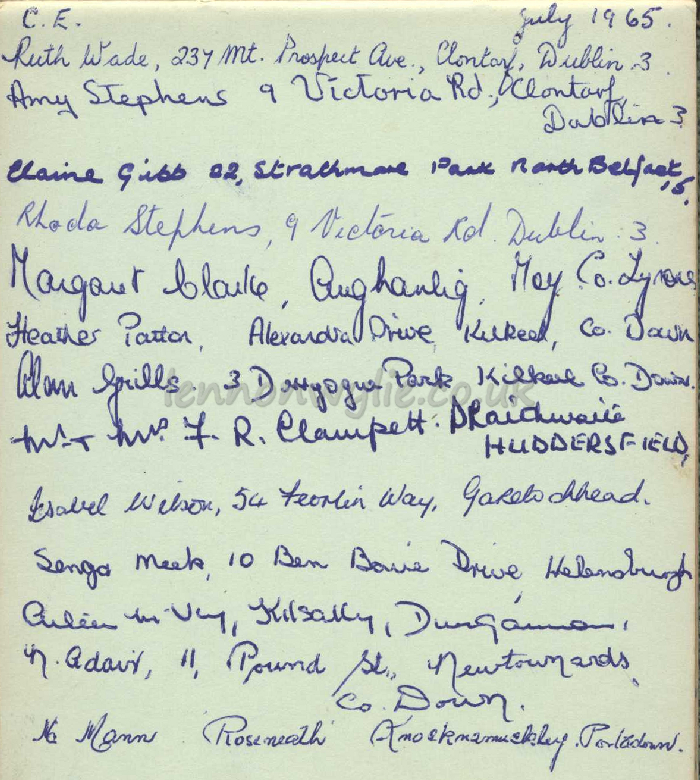 C.E. July 1965.
Ruth Wade, 237 Mt. Prospect Ave., Clontarf, Dublin 3
Amy Stephens 9 Victoria Rd., Clontarf,
Dublin 3
Elaine Gibb 22, Strathmore Park North Belfast, 15.
Rhoda Stephens, 9 Victoria Rd. Dublin 3.
Margaret Clarke, Aughanlig, Moy Co. Tyrone
Heather Patton, Alexandra Drive, Kilkeel, Co. Down
Alan Grills 3 Park Kilkeel Co. Down.
lennonwylie.co.uk
Mr & Mrs F. R. Clampett.
HUDDERSFIELD,
Isabel Wilson, 54 Feorlin Way, Garelochhead.
Senga Meek, 10 Ben Bowie Drive, Helensburgh
Kilsally, Dungannon,
N. Adair, 11, Pound St., Newtownards,
Co. Down.
N. Mann Roseneath Knocknamuckley. Portadown.